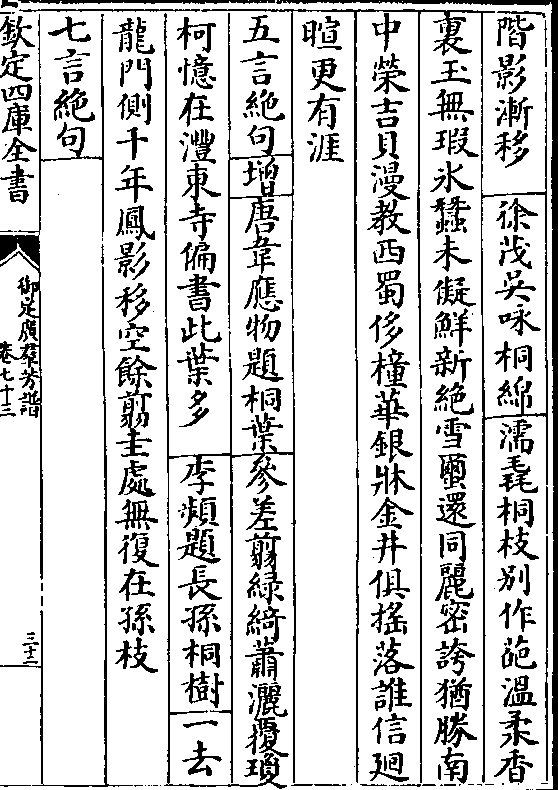 階影漸移　徐茂吳咏桐綿　濡毳桐枝別作葩溫柔香
裏玉無瑕氷蠶未儗鮮新絶雪蠒還同麗密誇猶勝南
中榮吉貝漫教西蜀侈橦華銀牀金井俱揺落誰信廻
暄更有涯
五言絶句　増　唐韋應物題桐葉　參差翦緑綺蕭灑覆瓊
柯憶在灃東寺偏書此葉多　李頻題長孫桐樹　一去
龍門側千年鳳影移空餘翦圭處無復在孫枝
七言絶句
欽定四庫全書
御定廣羣芳譜
卷七十三
三十二